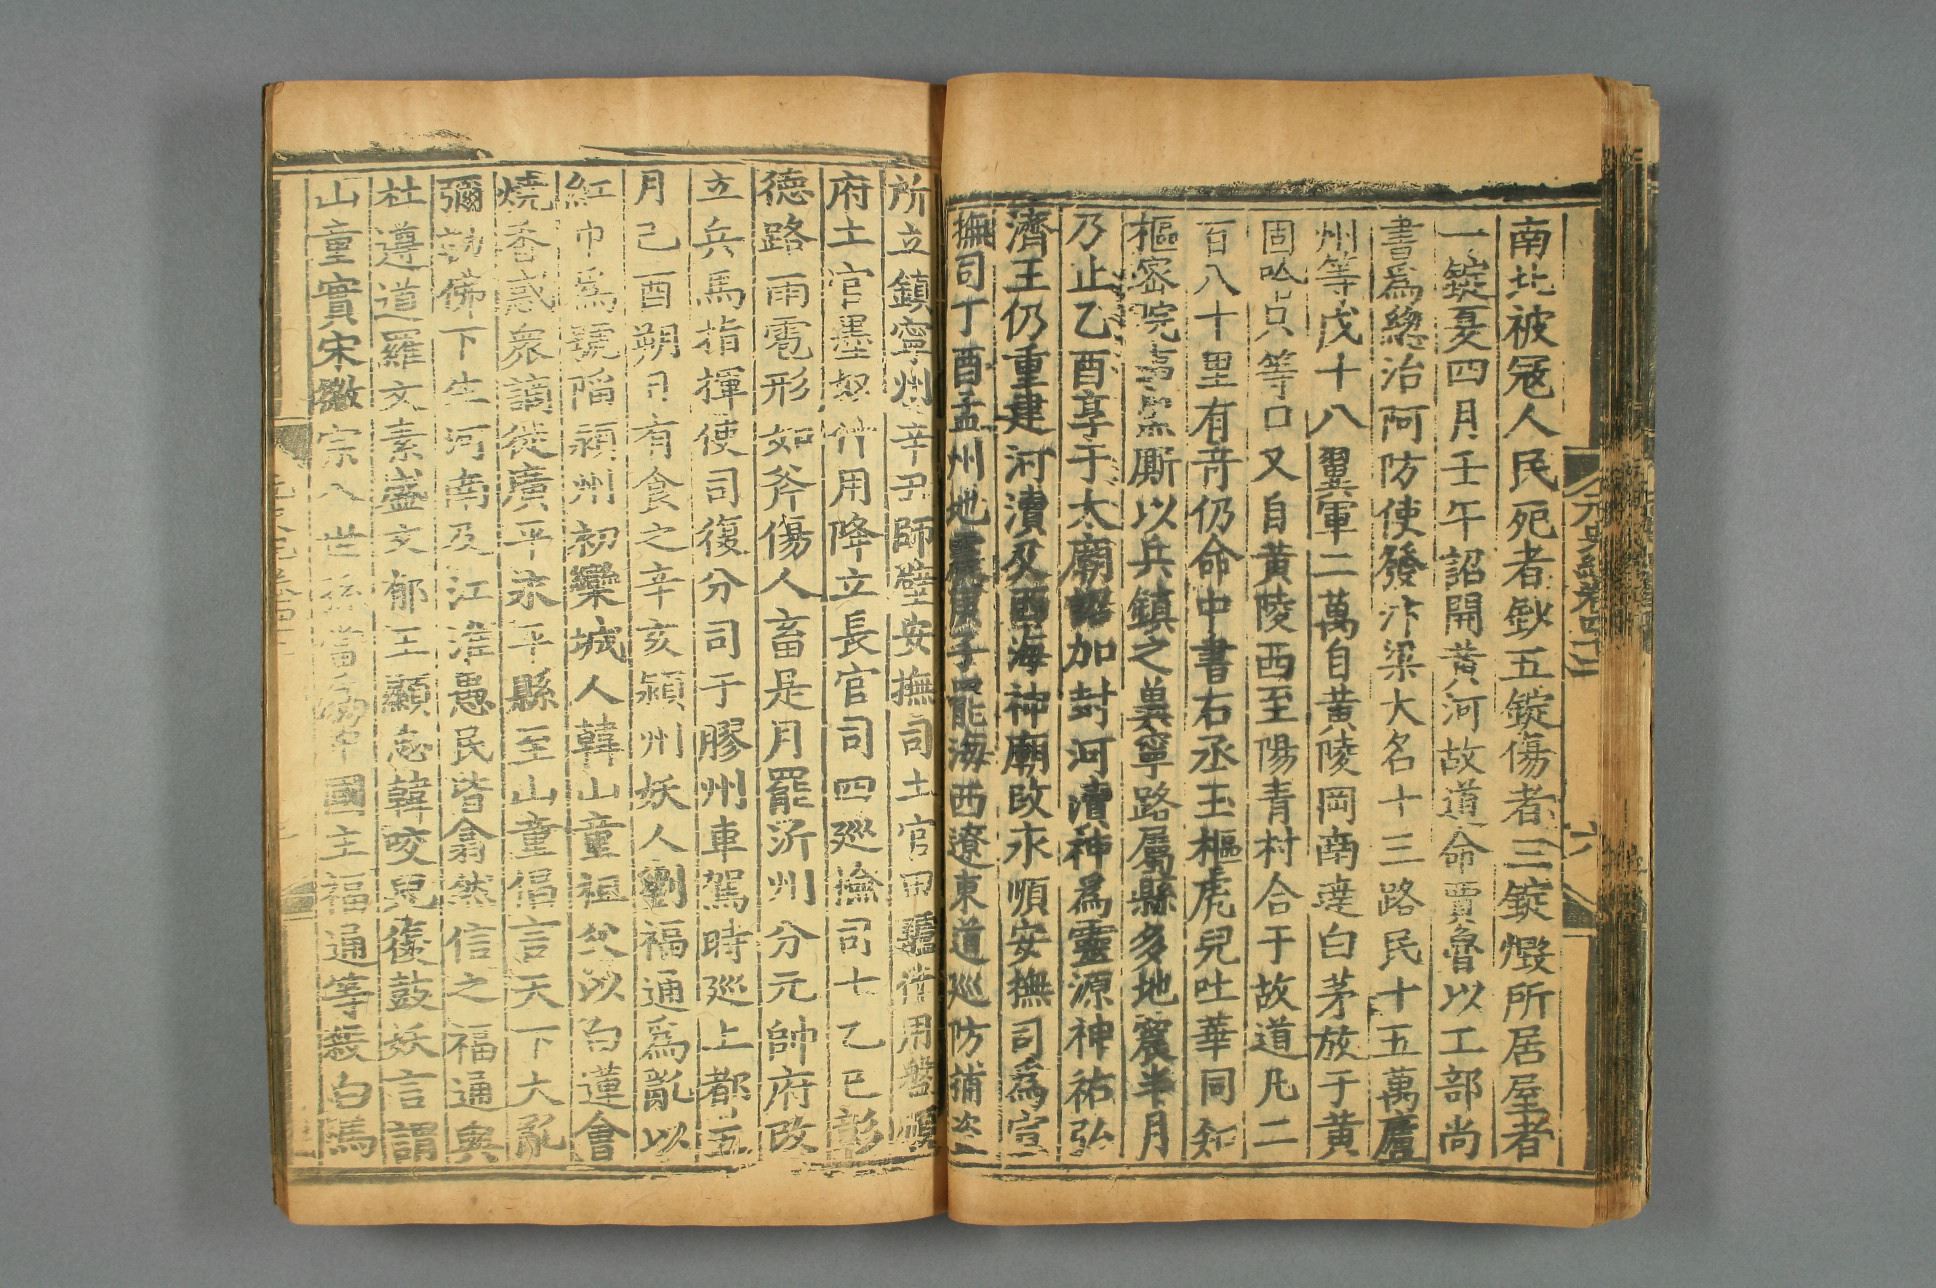 南北被冦人民死者鈔五錠傷者三錠燬所居屋者
一錠夏四月壬午詔開黄河故道命賈魯以工部尚
書爲總治河防使發汴梁大名十三路民十五萬廬
州等戍十八翼軍二萬自黄陵岡南達白茅放于黄
固哈只等口又自黄陵西至陽青村合于故道凡二
百八十里有竒仍命中書右丞玉樞虎兒吐華同知
樞宻院事黒厮以兵鎮之冀寧路屬縣多地震半月
乃止乙酉享于太廟詔加封河瀆神爲靈源神祐弘
濟王仍重建河瀆及西海神廟改永順安撫司爲宣
撫司丁酉孟州地震庚子罷海西遼東道廵防捕盗
所立鎮寧州辛丑師壁安撫司土官田驢什用盤順
府土官墨奴什用降立長官司四廵撿司七乙巳彰
德路雨雹形如斧傷人畜是月罷沂州分元帥府改
立兵馬指揮使司復分司于膠州車駕時廵上都五
月己酉朔日有食之辛亥潁州妖人劉福通爲亂以
紅巾爲號陷潁州初欒城人韓山童祖父以白蓮會
燒香惑衆謫徙廣平永平縣至山童倡言天下大亂
彌勒佛下生河南及江淮愚民皆翕然信之福通與
杜遵道羅文素盛文郁王顯忠韓咬兒復鼓妖言謂
山童實宋徽宗八世孫當爲中國主福通等殺白馬
元史紀卷四十二
六